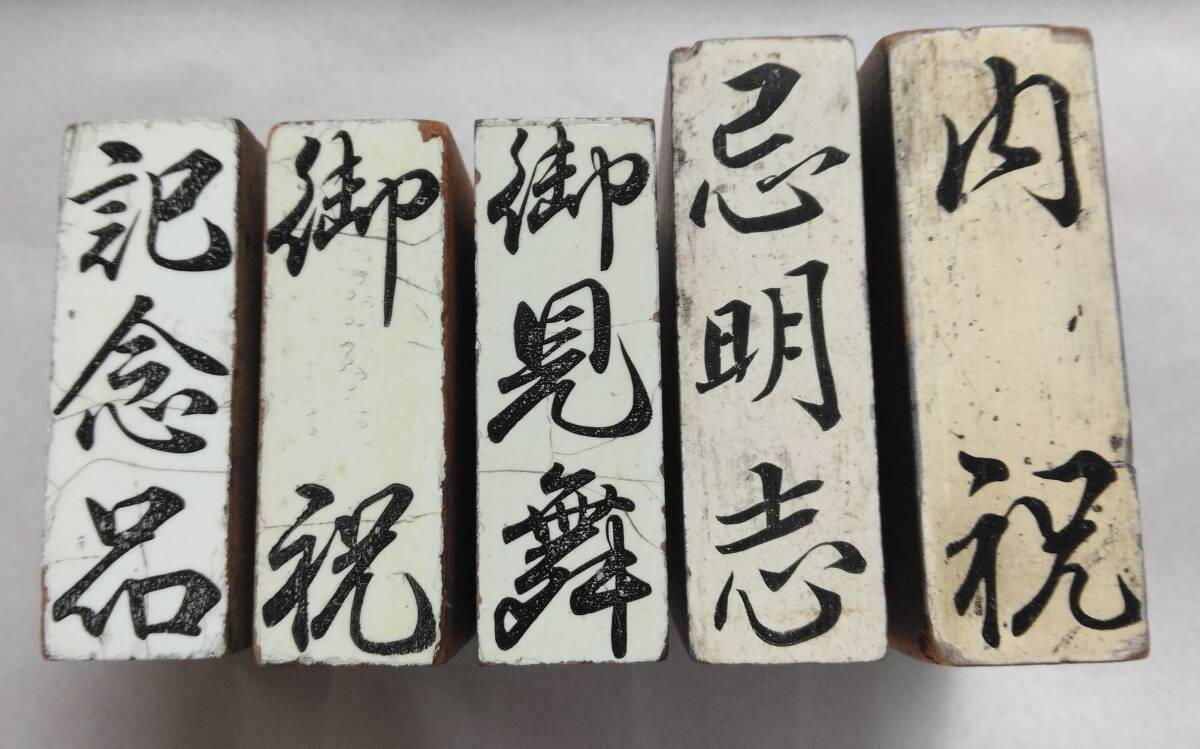 記念品
御祝
御見舞
忌明志
内祝